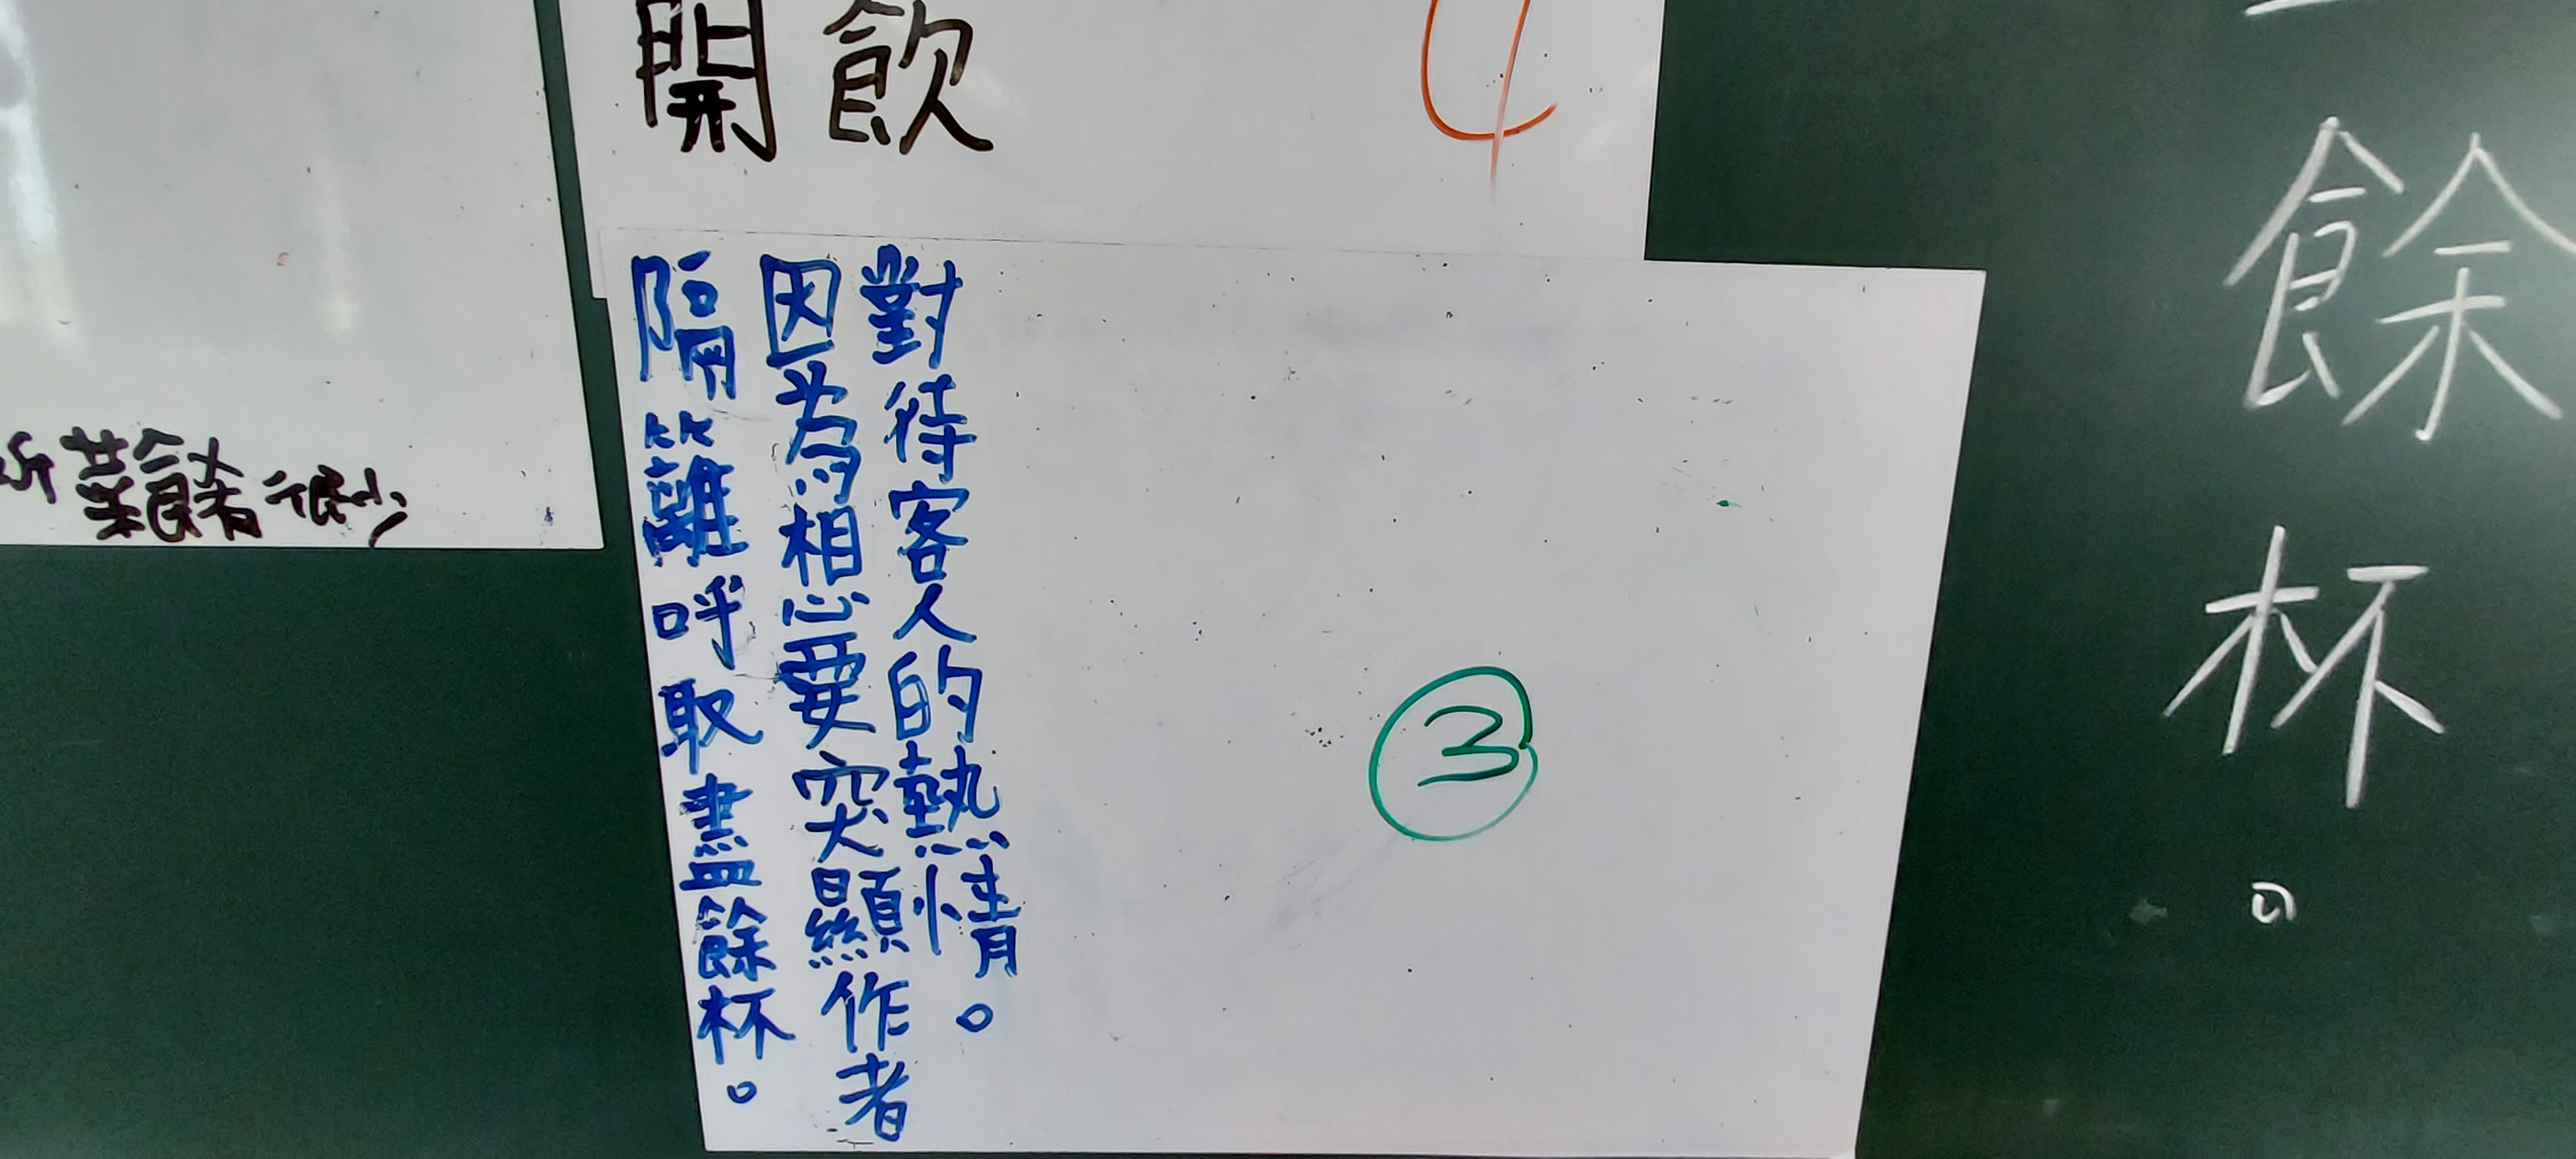 開
飲
菜餚很少
隔籬呼取盡餘杯。
因為想要突顯作者
對待客人的熱情。
3
餘杯。